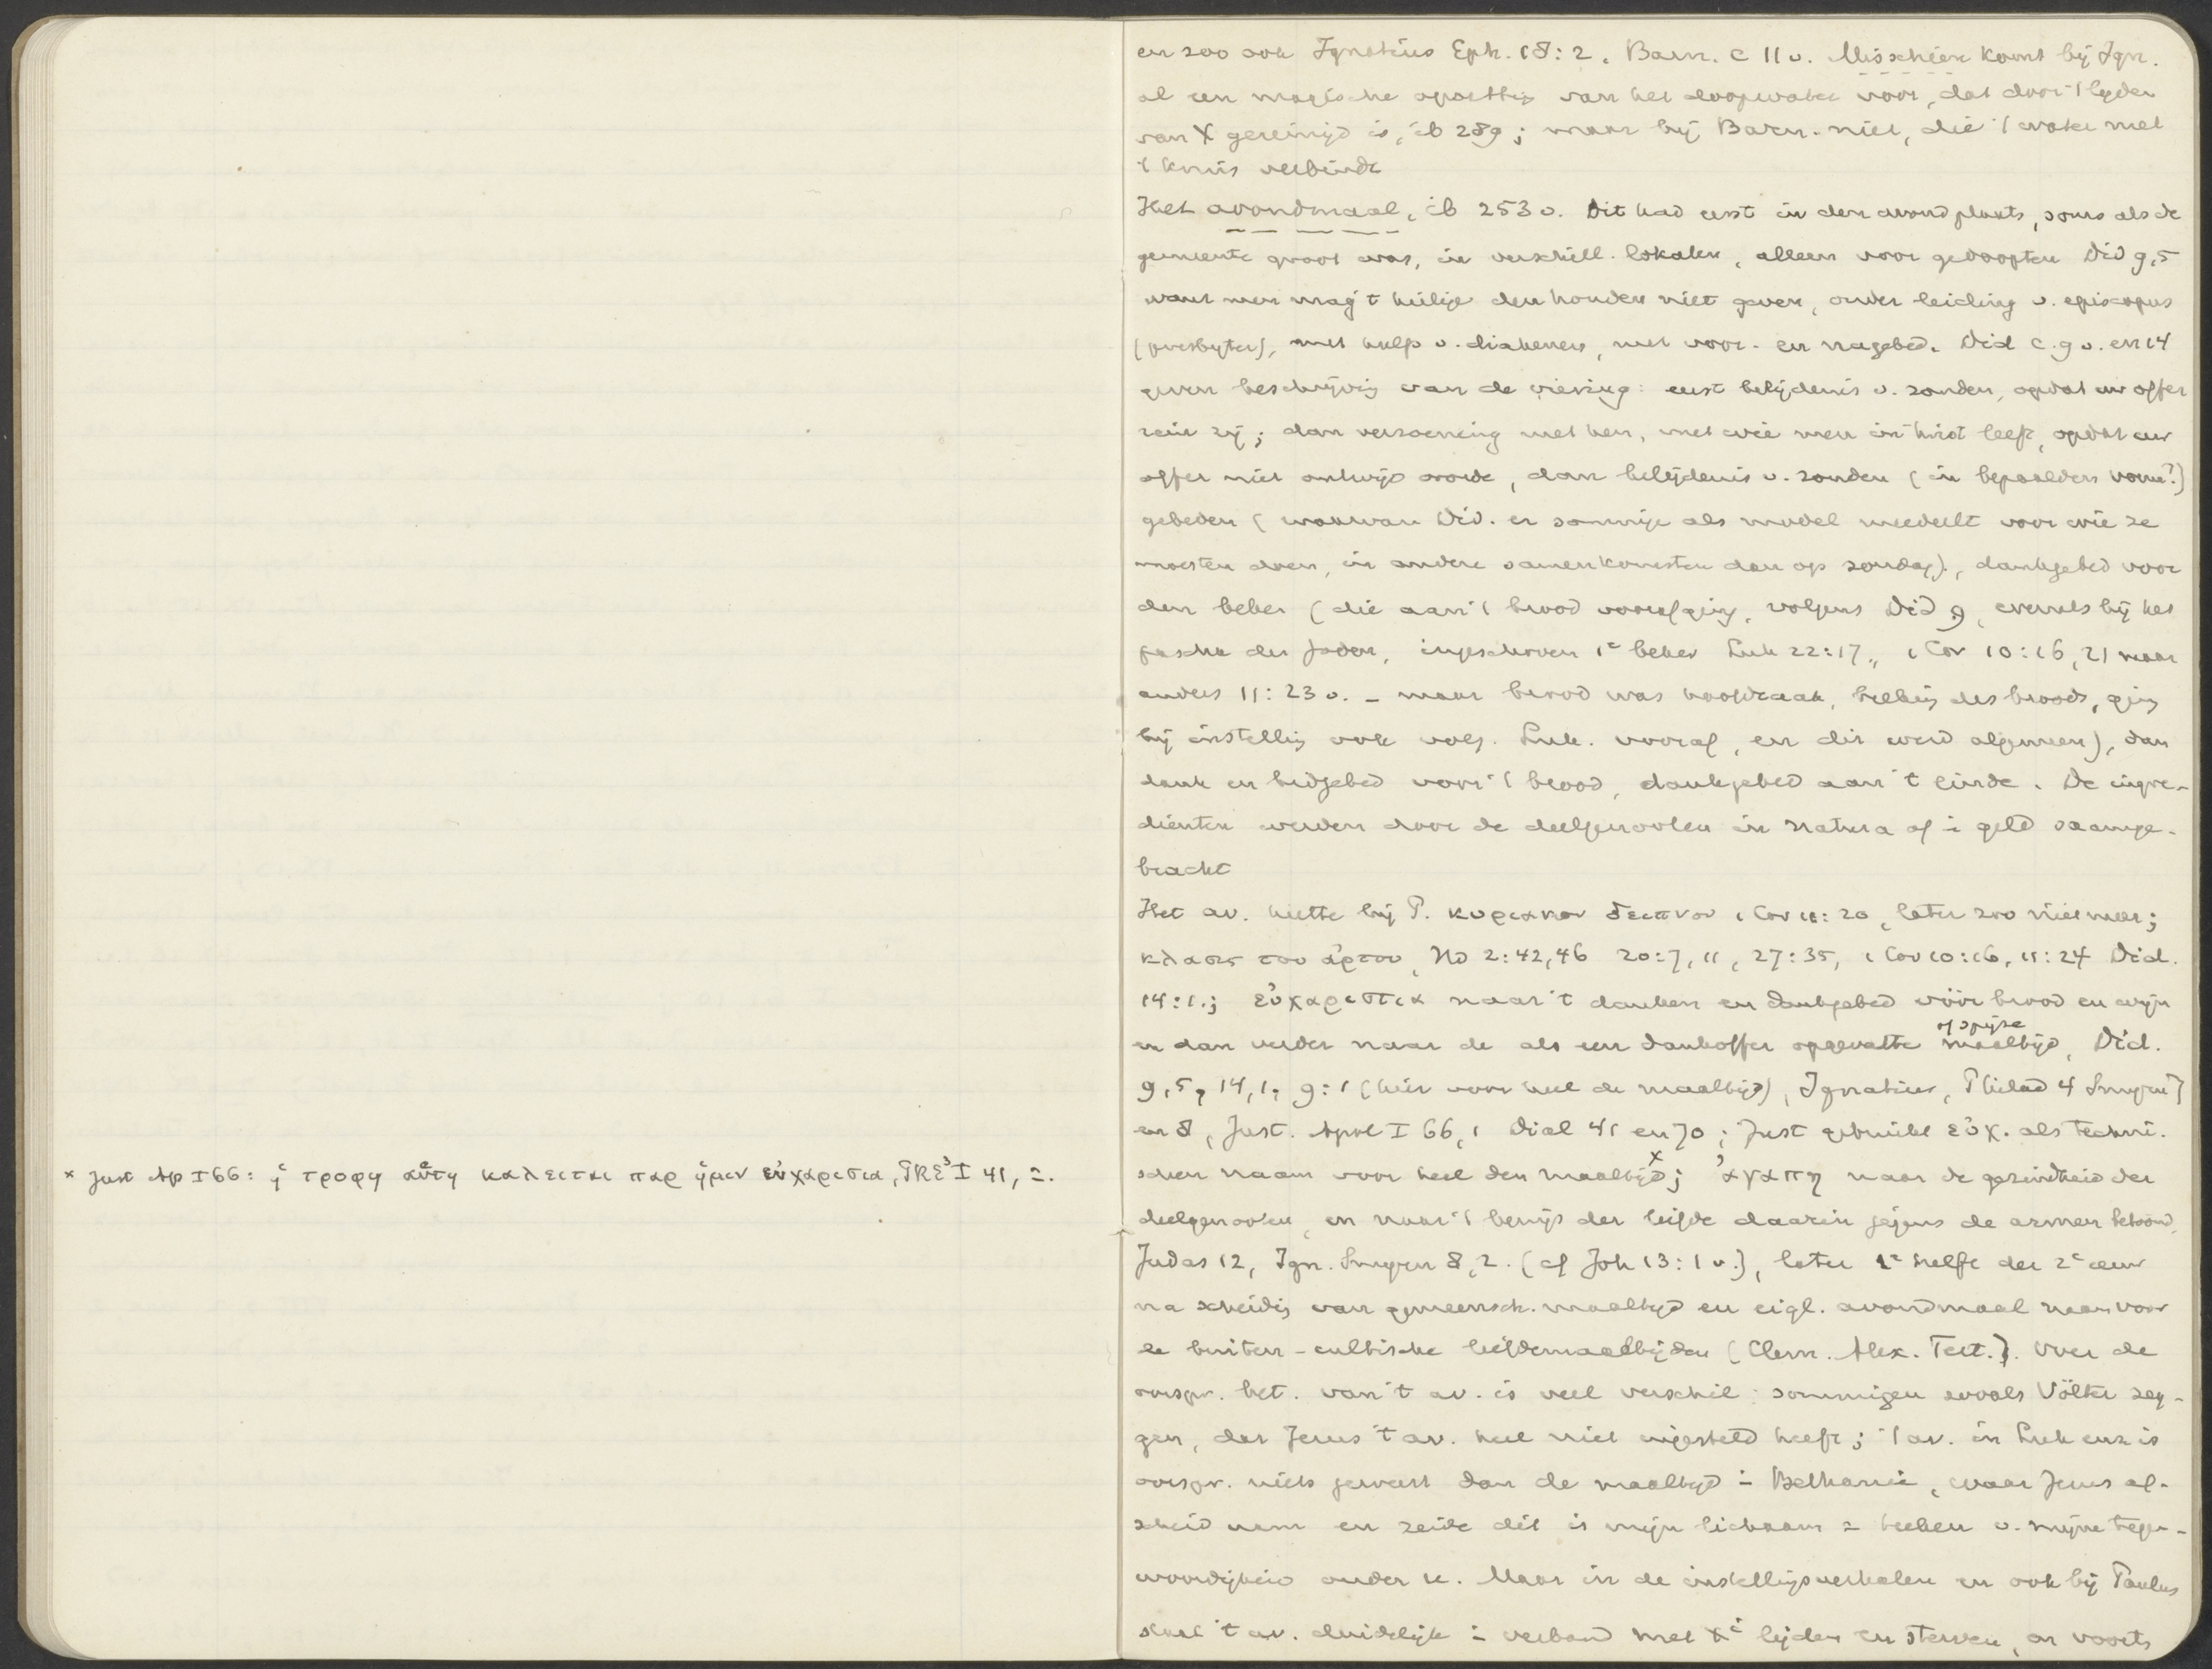 * Just Ap I 66: ἡ τροφη αὑτη καλειται παρ ἡμιν εὐχαριστια, PRE³ I 41, 2.
en zoo ook Ignatius Eph. 18:2, Barn. c 11 v. Misschien komt bij Ign.
al een magische opvatting van het doopwater voor, dat door 't lijden
van X gereinigd is, ib 289; maar bij Barn. niet, die 't water met
't kruis verbindt
Het avondmaal, ib 253 v. Dit had eerst in den avond plaats, soms als de
gemeente groot was, in verschill. lokalen, alleen voor gedoopten Did 9,5
want men mag 't heilige den honden niet geven, onder leiding v. episcopus
(presbyter), met hulp v. diakenen, met voor- en nagebed. Did c. 9 v. en 14
geven beschrijving van de viering: eerst belijdenis v. zonden, opdat uw offer
rein zij; dan verzoening met hen, met wie men in twist leeft, opdat uw
offer niet ontwijd worde, dan belijdenis v. zonden (in bepaalden vorm?)
gebeden (waarvan Did. er sommige als model meedeelt voor wie ze
moesten doen, in andere samenkomsten dan op zondag), dankgebed voor
den beker (die aan 't brood voorafging, volgens Did 9, evenals bij het
pascha der Joden, ingeschoven 1e beker Luk 22:17, 1 Cor 10:16, 21 maar
anders 11:23 v. - maar brood was hoofdzaak, breking des broods, ging
bij instelling ook volg. Luk. vooraf, en dit werd algemeen), dan
dank en bidgebed voor 't brood, dankgebed aan 't einde. De ingre-
dienten werden door de deelgenooten in natura of i geld saamge-
bracht
Het av. heette bij P. κυριακον δειπνον 1 Cor 11:20, later zoo niet meer;
κλασις του ἀρτου, Hd 2:42,46 20:7, 11, 27:35, 1 Cor 10:16, 11:24 Did.
14:1.; εὐχαριστια naar 't danken en dankgebed vóór brood en wijn
en dan verder naar de als een dankoffer opgevatte maaltijd of spijze, Did.
9,5, 14,1, 9:1 (hier voor heel de maaltijd), Ignatius, Philad 4 Smyrn 7
en 8, Just. Apol I 66, 1 Dial 41 en 70; Just gebruikt εὐχ. als techni-
schen naam voor heel den maaltijd x; ἀγαπη naar de gezindheid der
deelgenooten, en naar 't bewijs der liefde daarin jegens de armen betoond,
Judas 12, Ign. Smyrn 8,2. (cf Joh 13:1 v.), later 1e helft der 2e eeuw
na scheiding van gemeensch. maaltijd en eigl. avondmaal naam voor
de buiten-cultische liefdemaaltijden (Clem. Alex. Tert.). Over de
oorspr. bet. van 't av. is veel verschil: sommigen zooals Völter zeg-
gen, dat Jezus 't av. heel niet ingesteld heeft; 't av. in Luk enz is
oorspr. niets geweest dan de maaltijd i Bethanië, waar Jezus af-
scheid nam en zeide dit is mijn lichaam = teeken v. mijne tegen-
woordigheid onder u. Maar in de instellingsverhalen en ook bij Paulus
staat 't av. duidelijk i verband met Xi lijden en sterven, en voorts